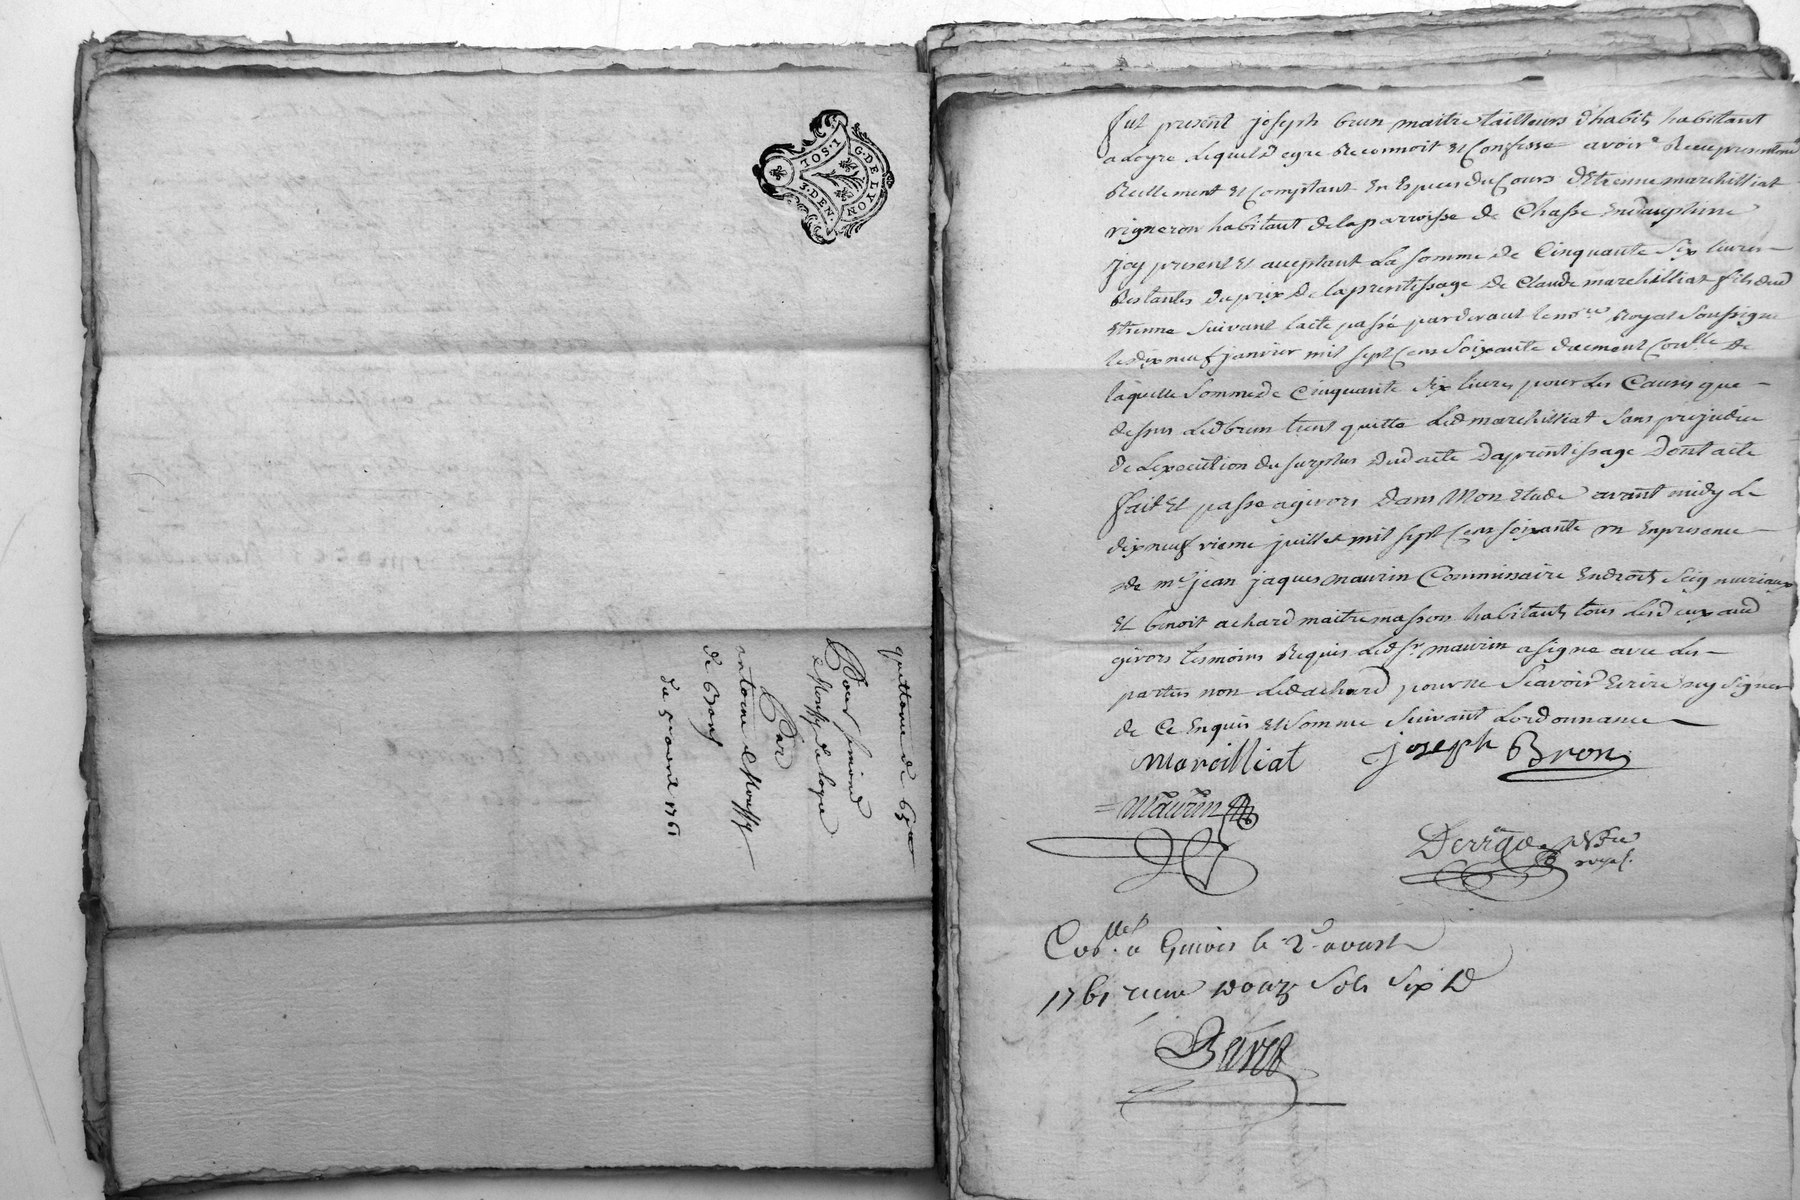 G. DE LYON
1 SOL.
3. DEN.
quittance de 63##
Pour simond
Moussy de loyre
Par
antoine Moussy
de Bans
du 5 aoust 1761
fut présent joseph brun maitre tailleurs d'habits habitant
a Loyre Lequel de gre Reconnoit et Confesse avoir Receu presentemt
Reellement et Comptant En Especes du Cours d'Etienne marchilliat
vigneron habitant de la parroisse de Chasse En dauphiné
jcy present et acceptant La somme de Cinquante Six livres
Restantes du prix de laprentissage de Claude marchilliat fils dud
Etienne suivant lacte passé pardevant le nre Royal Soussigne
le dix neuf janvier mil sept Cens Soixante duement Conllé de
laquelle Somme de Cinquante Six livres pour Les Causes que
dessus Led brun tient quitte Led marchilliat Sans prejudice
de Lexecution du surplus dud acte d'aprentissage Dont acte
fait Et passé a givors dans Mon Etude avant midy Le
dix neuf vieme juillet mil sept Cens soixante un En presence
de me jean jaques maurin Commissaire En droits Seigneuriaux
Et benoit achard maitre masson habitants tous Les deux aud
givors tesmoins Requis Led sr maurin a signe avec Les
parties non Led achard pour ne Scavoir Ecrire ny Signer
de Ce Enquis Et Somme Suivant Lordonnance
Marcilliat
joseph Bron
Maurin
Derigde nre
royal.
Conllé a Givors le 2 aoust
1761 recu douze Sols Six D